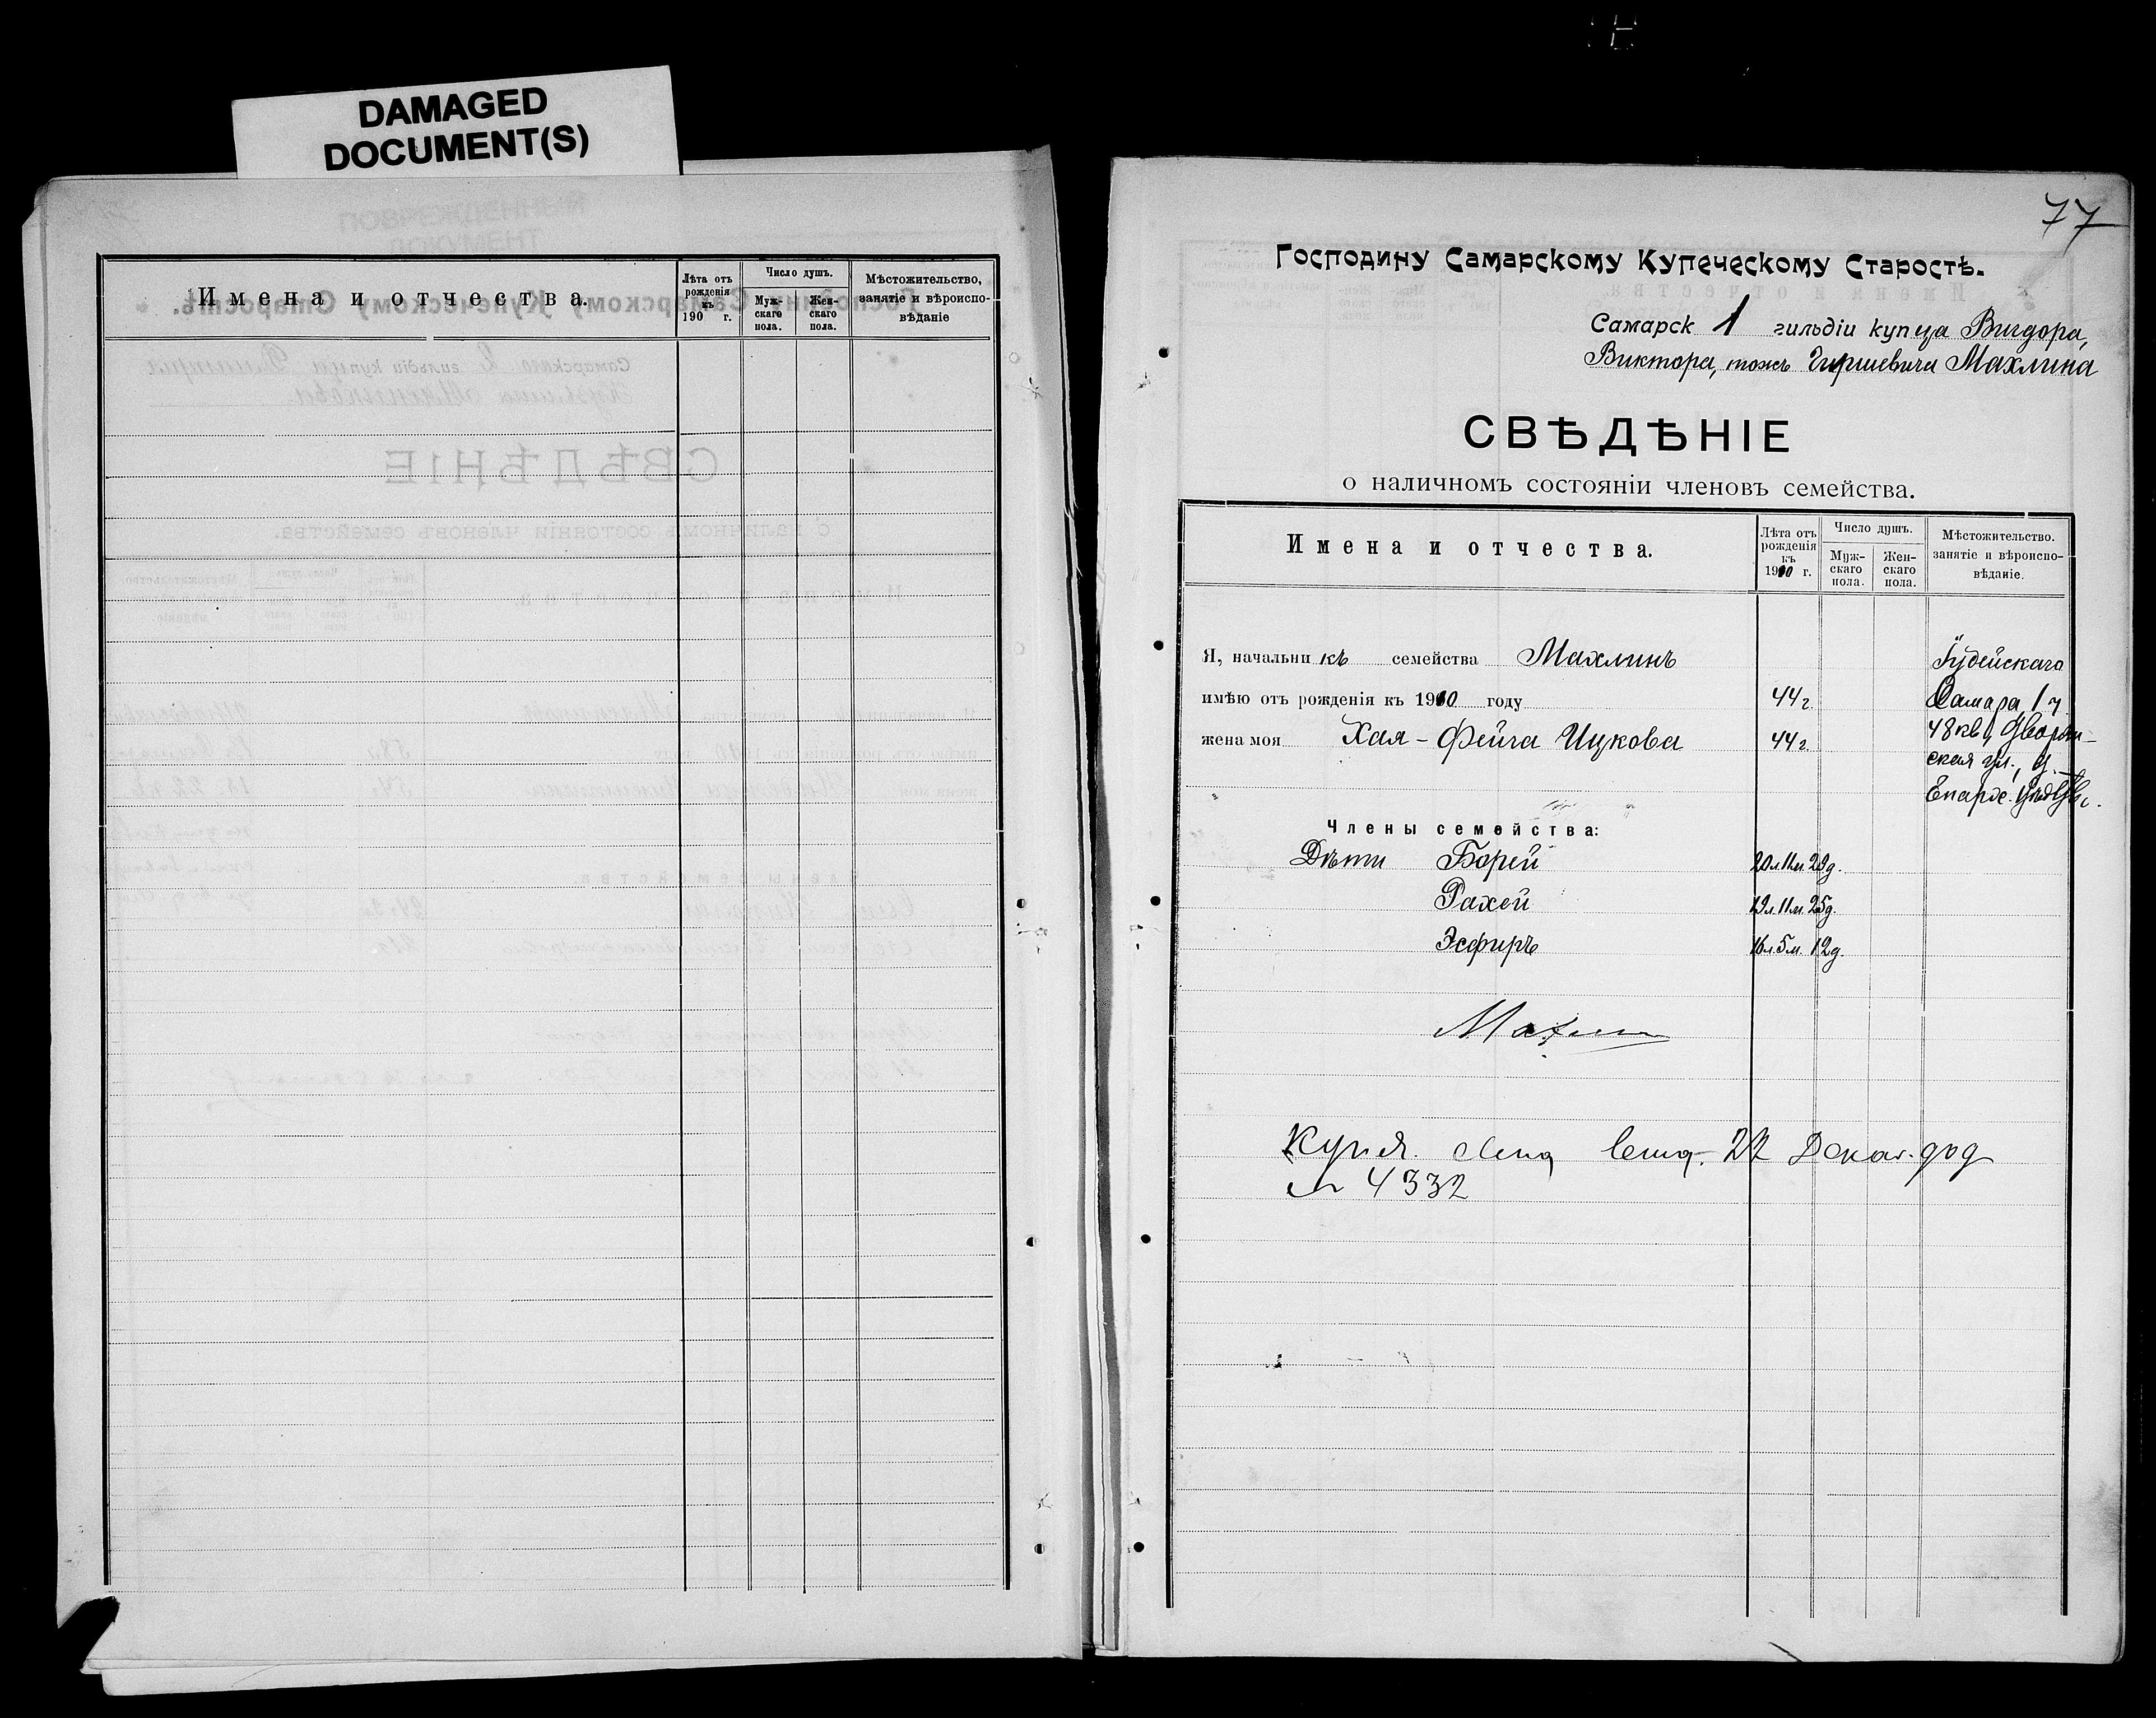 DAMAGED
DOCUMENT(S)
Имена и отчества.
Лѣта отъ рожденія къ 190 г.
Число душъ.
Муж-скаго пола.
Жен-скаго пола.
Мѣстожительство, занятіе и вѣроиспо-вѣданіе
77
Господину Самарскому Купеческому Старостѣ.
Самарск 1 гильдіи купца Вигдора,
Виктора, тожъ Гиршевича Махлина
СВѢДѢНІЕ
о наличномъ состояніи членовъ семейства.
Имена и отчества.
Лѣта отъ рожденія къ 1910 г.
Число душъ.
Муж-скаго пола.
Жен-скаго пола.
Мѣстожительство. занятіе и вѣроиспо-вѣданіе.
Я, начальникъ семейства Махлинъ
Іудейскаго
имѣю отъ рожденія къ 1910 году 44 г.
Самара, 1 ч.
жена моя Хая-Фейга Ицкова 44 г.
48 кв., Дворян-
ская ул., д.
Епарх.
Члены семейства:
Дѣти Борей 20 л. 11 м. 29 д.
Рахей 19 л. 11 м. 25 д.
Эсфирь 16 л. 5 м. 12 д.
Махлин
Купч. 22 Декаб.
№ 4332